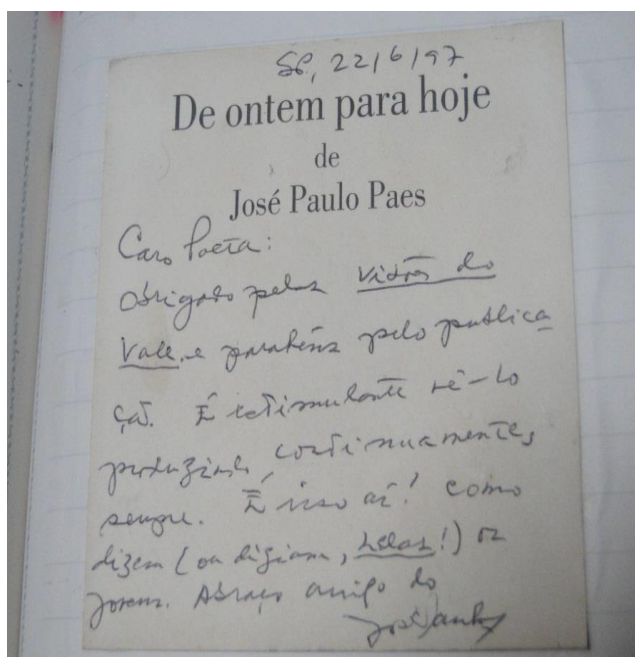 SP, 22/6/97
De ontem para hoje
de
José Paulo Paes
Caro Poeta:
Obrigado pelas Visões do
Vale, e parabéns pela publica
ção. É estimulante vê-lo
produzindo, continuamente,
sempre. É isso aí! como
dizem (ou diziam, hélas!) os
jovens. Abraço amigo do
José Paulo